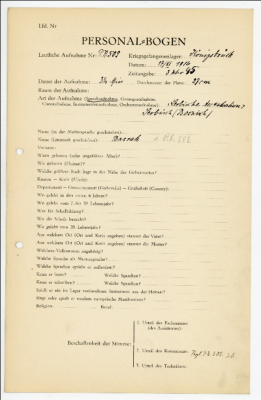 Lfd. Nr
PERSONAL-BOGEN
Lautliche Aufnahme Nr.: Kriegsgefangenenlager: Königsbrück
Datum:
Zeitangabe:
Dauer der Aufnahme: Durchmesser der Platte: 27 cm
Raum der Aufnahme:
Art der Aufnahme (Sprechaufnahme, Gesangsaufnahme,
Choraufnahme, Instrumentenaufnahme, Orchesteraufnahme):
Name (in der Muttersprache geschrieben):
Name (lateinisch geschrieben):
Vorname:
Wann geboren (oder ungefähres Alter)?
Wo geboren (Heimat)?
Welche größere Stadt liegt in der Nähe des Geburtsortes?
Kanton — Kreis (Ujedz):
Departement — Gouvernement (Gubernija) — Grafschaft (County):
Wo gelebt in den ersten 6 Jahren?
Wo gelebt vom 7. bis 20. Lebensjahr?
Was für Schulbildung?
Wo die Schule besucht?
Wo gelebt vom 20. Lebensjahr?
Aus welchem Ort (Ort und Kreis angeben) stammt der Vater?
Aus welchem Ort (Ort und Kreis angeben) stammt die Mutter?
Welchem Volksstamm angehörig?
Welche Sprache als Muttersprache?
Welche Sprachen spricht er außerdem?
Kann er lesen? Welche Sprachen?
Kann er schreiben? Welche Sprachen?
Spielt er ein im Lager vorhandenes Instrument aus der Heimat?
Singt oder spielt er modern europäische Musikweisen?
Religion: Beruf:
Beschaffenheit der Stimme:
1. Urteil des Fachmanns
(des Assistenten):
2. Urteil des Kommissars:
3. Urteil des Technikers: